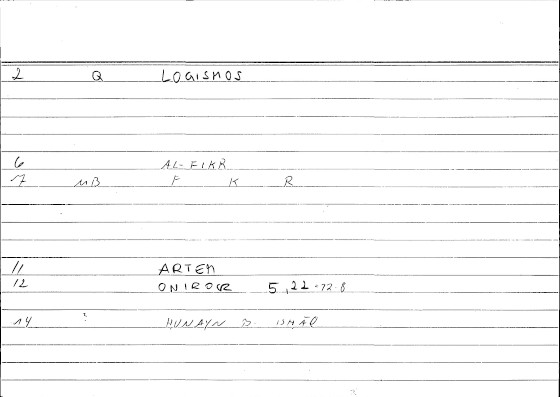 2 Q LOGISMOS
6 AL-FIKR
7 MB F K R
11 ARTEM
12 ONIROCR 5,22-72.8
14 ? HUNAYN B. ISHĀQ